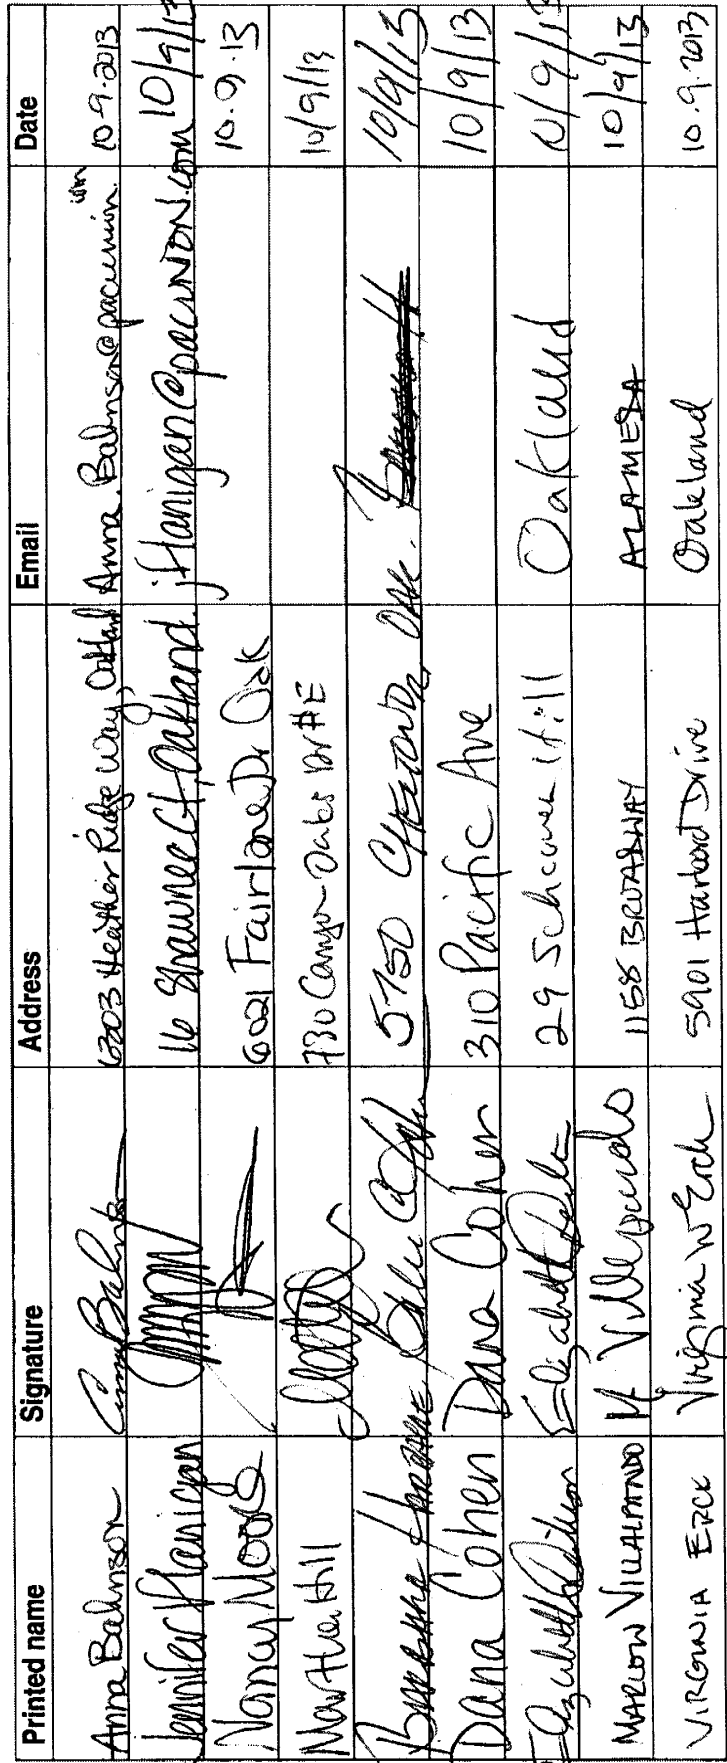 Printed name Signature Address Email Date
Anna Bahnson Anna Bahnson 6303 Heather Ridge Way, Oakland Anna.Bahnson@pacunion.com 10-9-2013
Jennifer Hanigan 16 Shawnee Ct, Oakland. jHanigan@pacUNION.com 10/9/13
Nancy Moore 6021 Fairlane Dr Oak 10.9.13
Martha Hill 730 Canyon Oaks Dr #E 10/9/13
5750 Oak. 10/9/13
Dana Cohen Dana Cohen 310 Pacific Ave 10/9/13
Elizabeth Elizabeth 29 Hill Oakland 10/9/13
MARLOW VILLALPANDO M Villalpando 1158 BROADWAY ALAMEDA 10/9/13
VIRGINIA ERCK Virginia W Erck 5901 Harbord Drive Oakland 10.9.2013